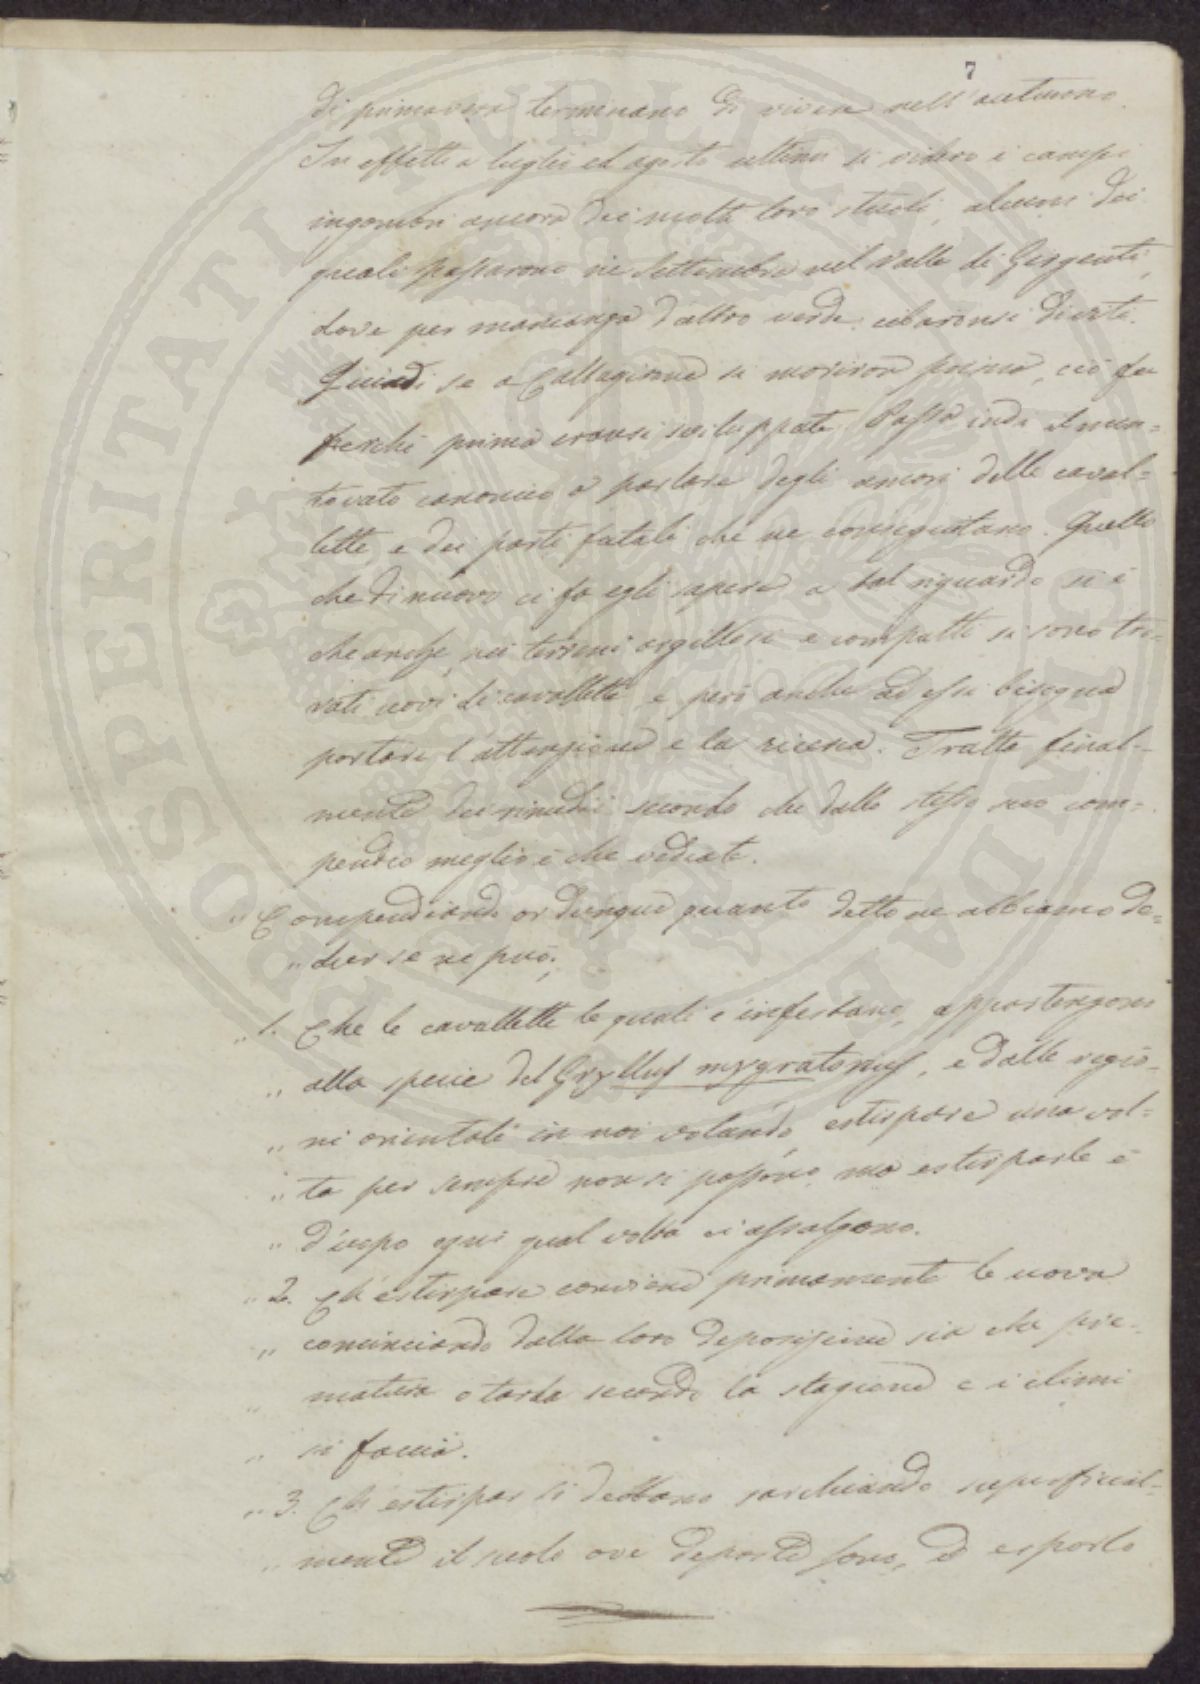 7
di primavera terminano di vivere nell'autunno.
In effetti a luglio ed agosto ultimi si videro i campi
ingombri ancora dei molti loro stuoli, alcuni dei
quali passarono in Settembre nel Valle di Girgenti,
dove per mancanza d'altro verde cibaronsi di
Quindi se a Caltagirone si morirono prima, ciò fu
perchè prima eransi sviluppate. Passa indi il men=
tovato canonico a parlare degli amori delle caval=
lette, e dei parti fatali che ne conseguitano. Quello
che di nuovo ci fa egli sapere a tal riguardo si è
che anche nei terreni argillosi e compatti si sono tro=
vati uovi di cavallette, e però anche ad essi bisogna
portare l'attenzione e la ricerca. Tratta final=
mente dei rimedii secondo che dallo stesso suo com=
pendio meglio è che vediate.
" Compendiando or dunque quanto detto ne abbiamo de=
" dur se ne può;
" 1. Che le cavallette le quali c'infestano, appartengono
" alla specie del Gryllus mygratorius, e dalle regio=
" ni orientali in noi volando, estirpare una vol=
" ta per sempre non si possono, ma estirparle è
" d'uopo ogni qual volta ci assalgono.
" 2. Ch'estirpare conviene primamente le uova
" cominciando dalla loro deposizione sia che pre=
" matura o tarda secondo la stagione e i climi
" si faccia.
" 3. Ch'estirpar si debbano sarchiando superficial=
" mente il suolo ove deposte sono, ed esporlo
PROSPERITATI PVBLICAE AVGENDAE